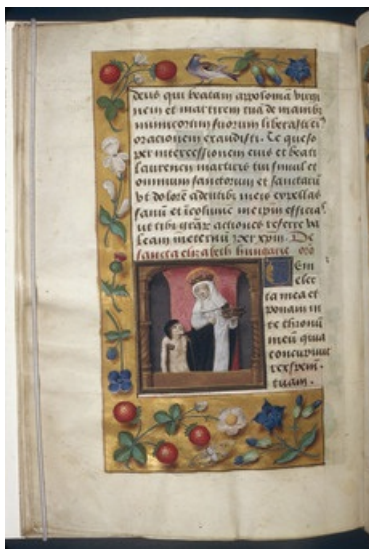 deus qui beatam appoloniā virgi
nem et martirem tuā de manibꝰ
inimicorum suorum liberasti et
orationem exaudisti. Te queso
per intercessionem eius et beati
laurencii martiris tui simul et
omnium sanctorum et sanctarū
vt dolorē a dentibꝰ meis expellas
sanū et
vt tibi grāꝝ actiones referre va
leam in eternū per xp̄m. De
sancta elizabeth hungarie oro
Ueni
elec
ta mea et
ponam in
te thronū
meū quia
concupiuit
rex speciē
tuam.